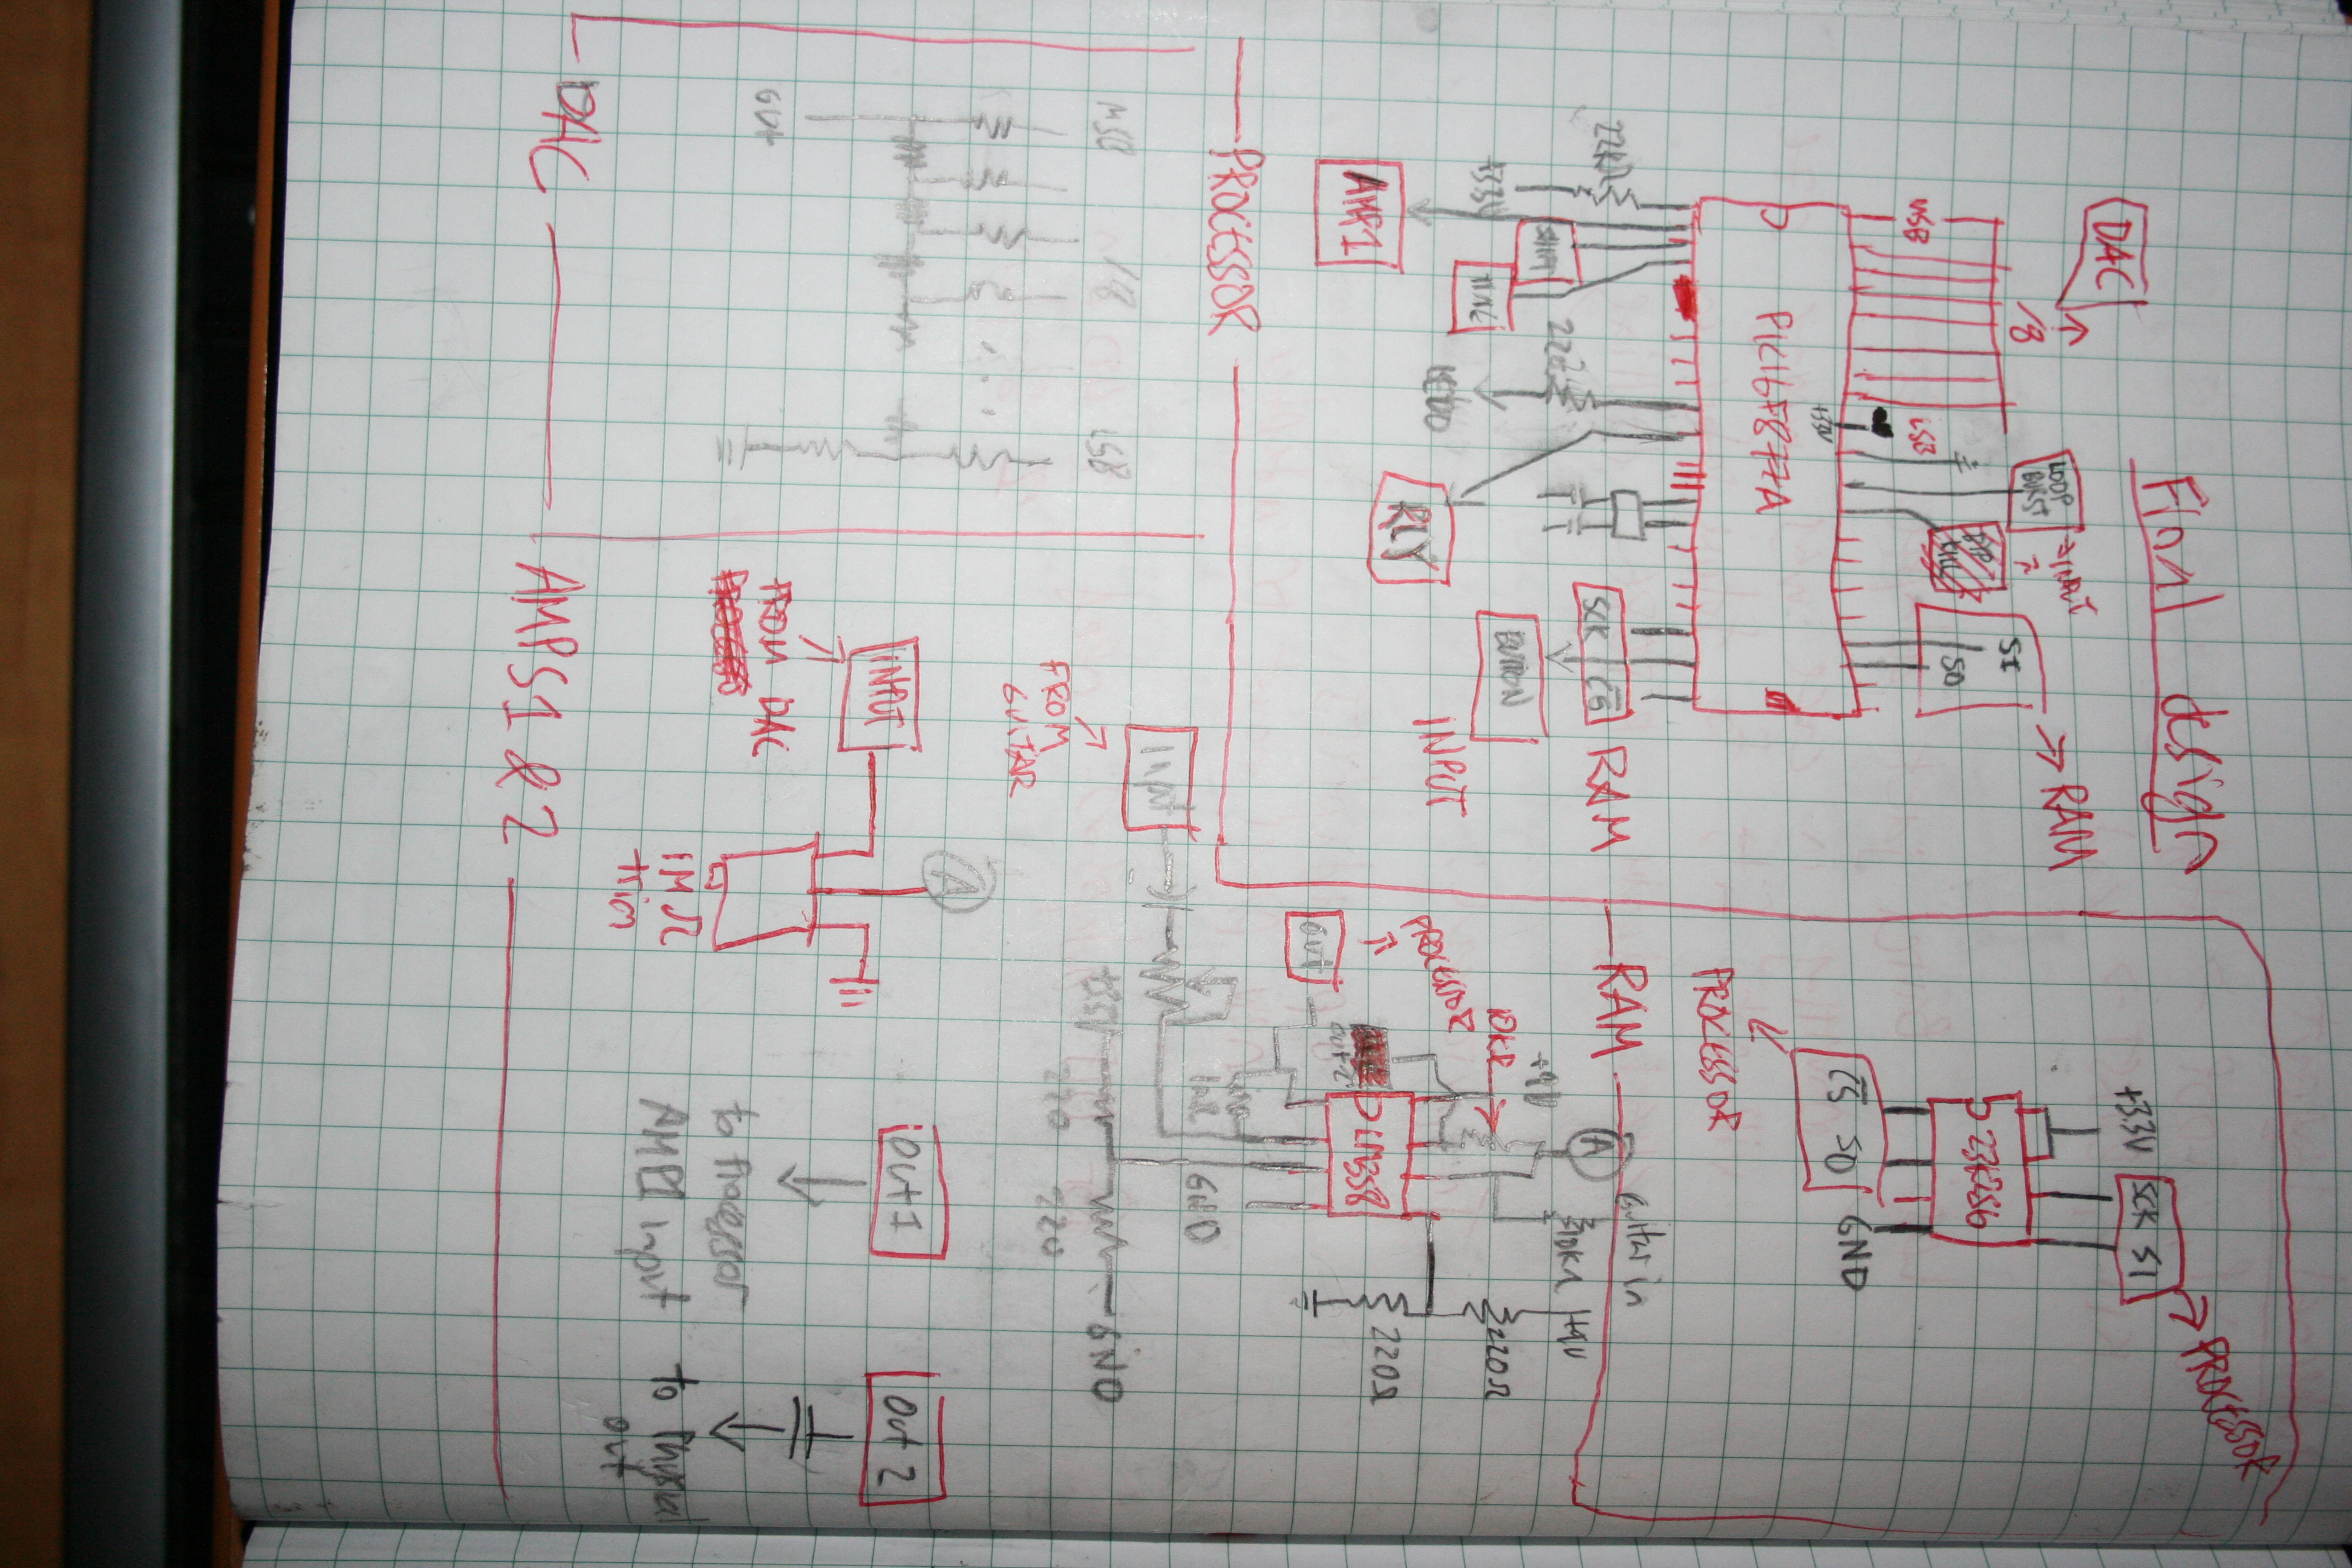 Final design
DAC
/8
MSB
LSB
LOOP
BURST
→INPUT
SI
SO
→ RAM
+3.3V
PIC16F877A
22KΩ
+3.3V
SHFT
AMP1
RLY
SCK CS
RAM
BUTTON
INPUT
PROCESSOR
+3.3V
SCK SI
→ PROCESSOR
23K256
CS SO
GND
PROCESSOR
RAM
A
Guitar in
10KΩ
+9V
+9V
10KΩ
220Ω
220Ω
PROCESSOR
LM358
out 2
out
GND
Input
FROM
GUITAR
GND
220
220
MSB
/8
LSB
. . .
out
DAC
A
INPUT
FROM DAC
1MΩ
trim
Out 1
to Processor
AMP1 input
Out 2
to Physical
out
AMPS 1 & 2